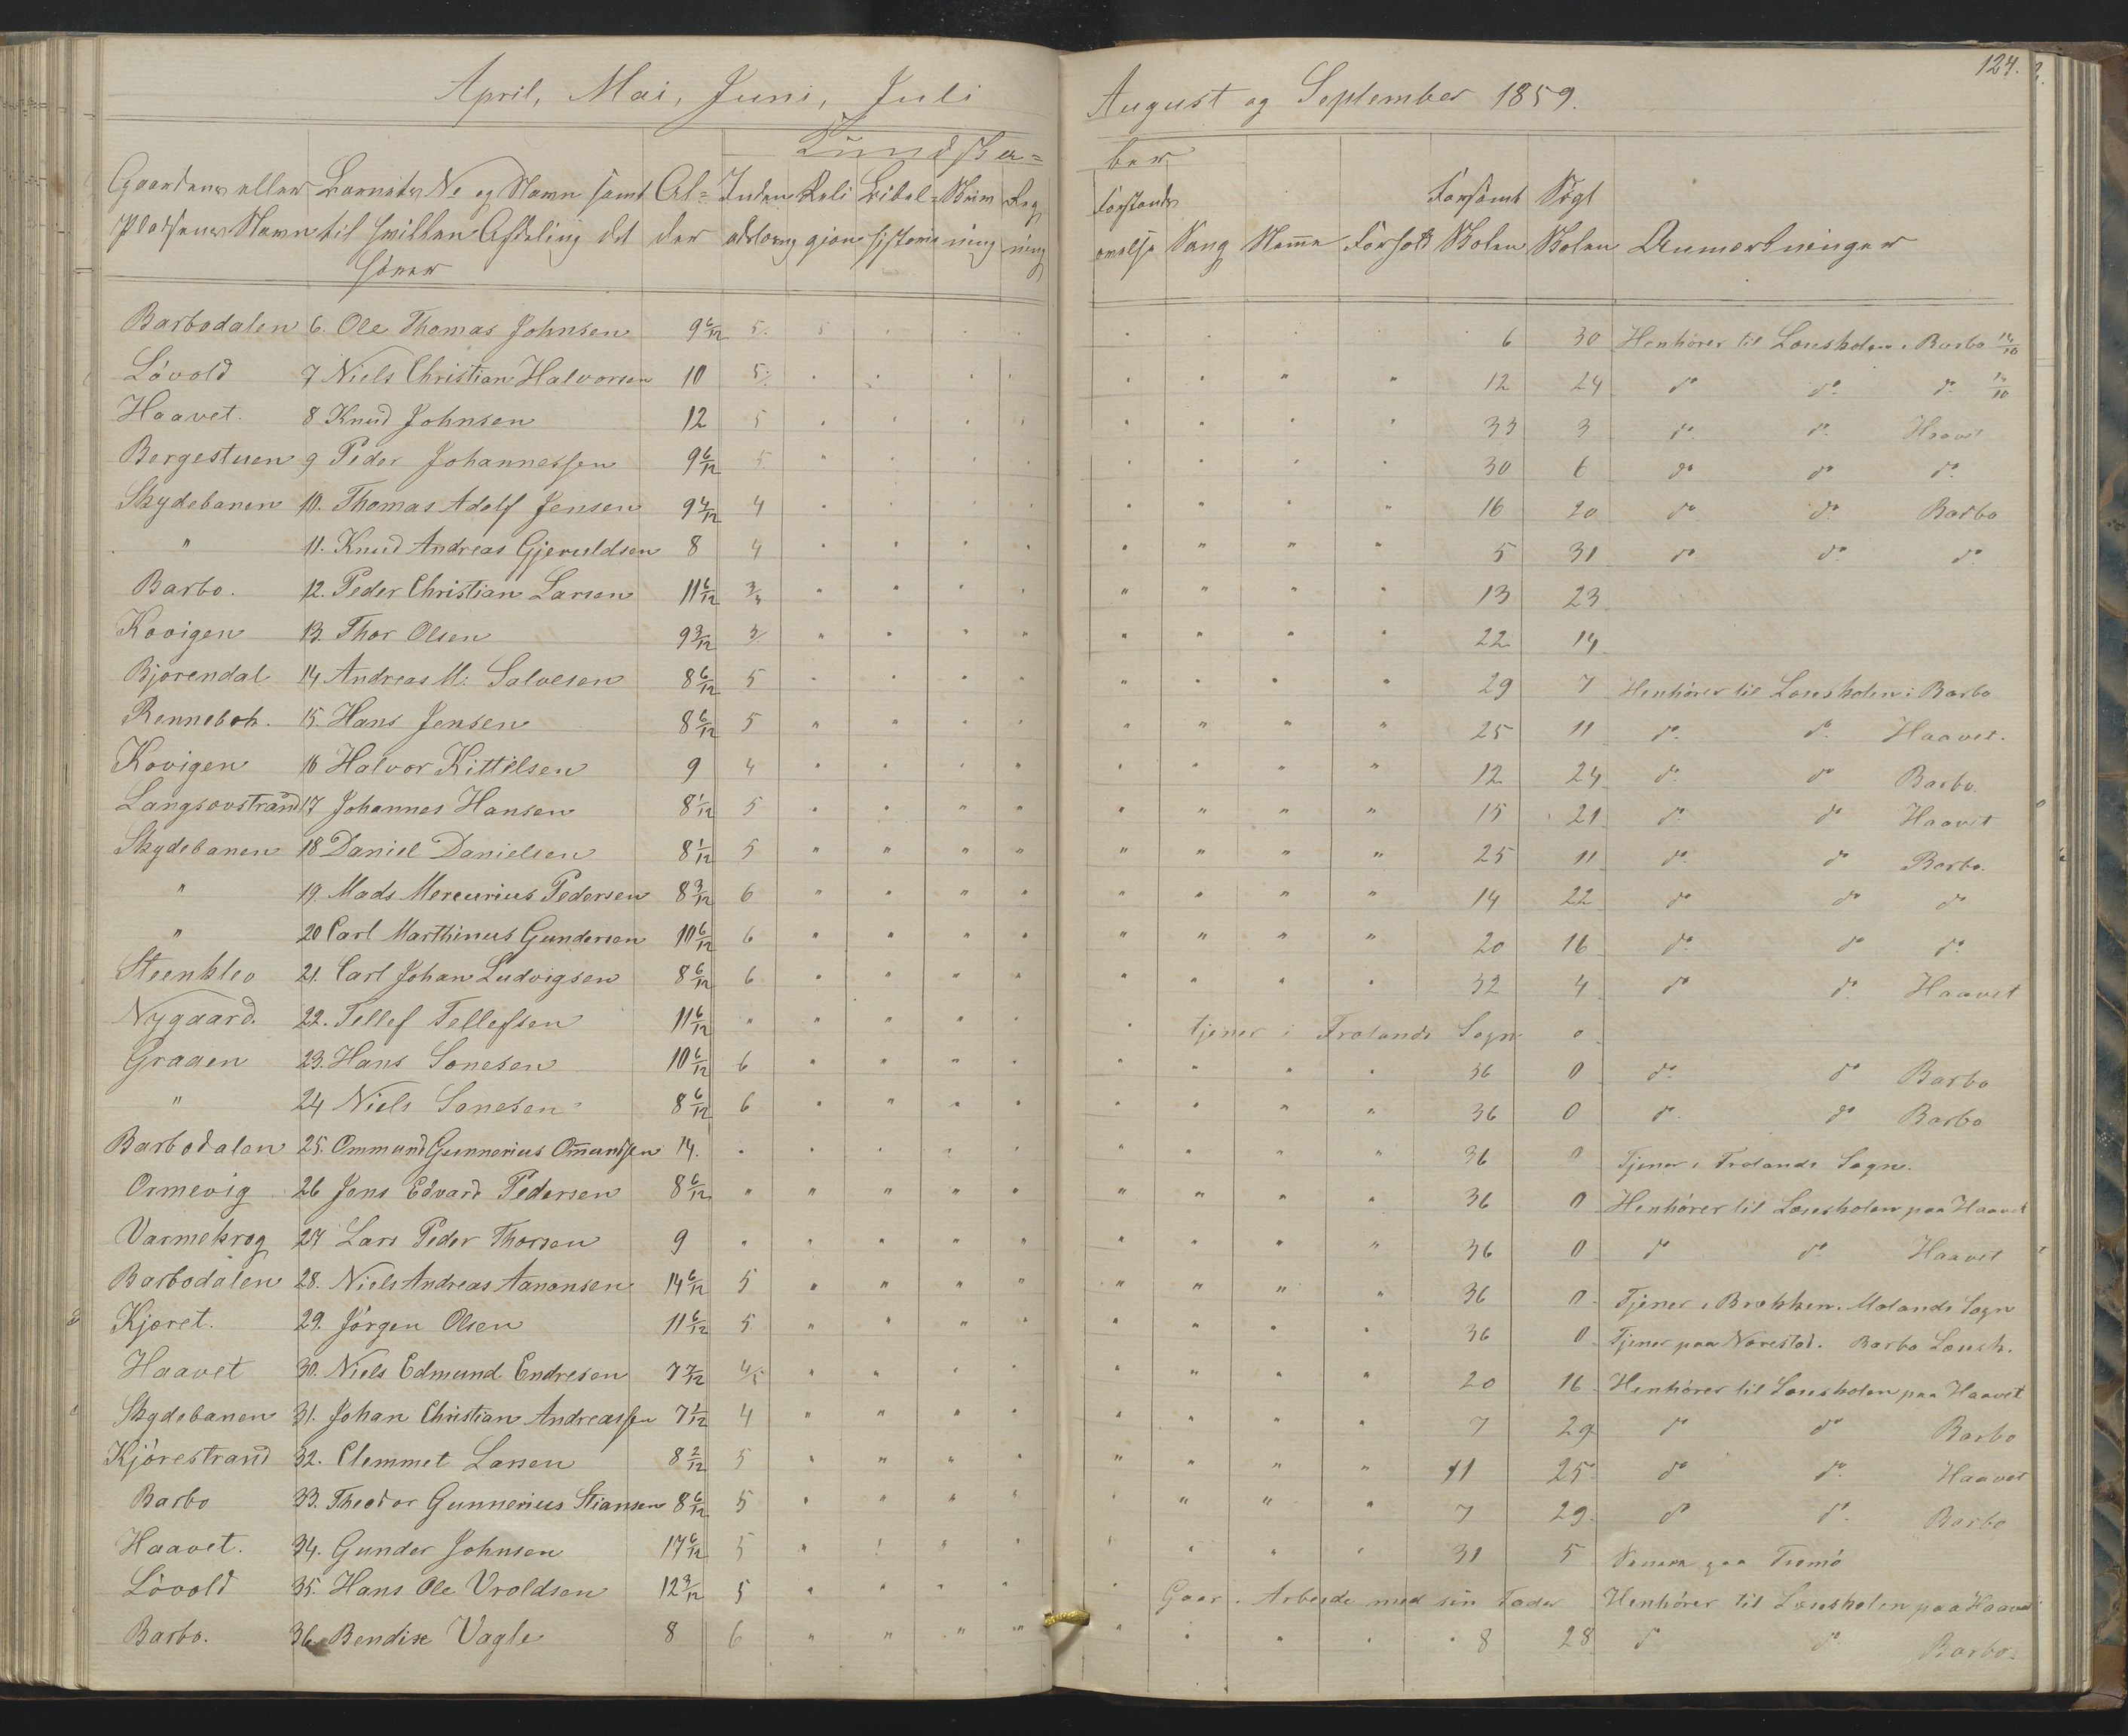 April, Mai, Juni, Juli
August og September 1859.
124.
Kundska=
ber
Gaardens eller Barnets No og Navn samt Al= Inden Reli Bibel= Skriv Reg
Pladsens Navn til hvilken Afdeling det der adlæsng gion historie ning ning
hører
Forstands Forsømt Søgt
øvelse Sang Nemme Forhold Skolen Skolen Anmærkninger
Barbodalen 6. Ole Thomas Johnsen 9 6/12 5. 5 6 30 Henhører til Læseskolen i Barbo 14/10
Løvold 7 Niels Christian Halvorsen 10 5. 12 24 do do do 14/10
Haavet. 8 Knud Johnsen 12 5 33 3 do do Haavet
Bergestuen 9 Peder Johannessen 9 6/12 5 " 30 6 do do do
Skydebanen 10. Thomas Adolf Jensen 9 4/12 4 16 20 do do Barbo
" 11. Knud Andreas Gjeruldsen 8 4 5 31 do do do
Barbo. 12. Peder Christian Larsen 11 6/12 3/4 13 23
Kovigen 13. Thor Olsen 9 3/12 3/ 22 14
Bjorendal 14 Andreas M. Salvesen 8 6/12 5 29 7 Henhører til Læseskolen i Barbo
Rennebok. 15. Hans Jensen 8 6/12 5 25 11 do do Haavet.
Kovigen 16 Halvor Kittilsen 9 4 12 24 do do Barbo.
Langsovstrand 17 Johannes Hansen 8 1/12 5 15 21 do do Haavet
Skydebanen 18 Daniel Danielsen 8 1/12 5 25 11 do do Barbo.
" 19. Mads Mercurius Pedersen 8 3/12 6 14 22 do do do
" 20 Carl Marthinus Gundersen 10 6/12 6 20 16 do do do
Steenklev 21. Carl Johan Ludvigsen 8 6/12 6 32 4 do do Haavet
Nygaard. 22. Tellef Tellefsen 11 6/12 " tjener i Frolands Sogn 0
Graaen 23. Hans Sonesen 10 6/12 6 36 0 do do Barbo
" 24 Niels Sonesen 8 6/12 6 36 0 do do Barbo
Barbodalen 25. Ommund Gunnerius Omundsen 14. 36 0 Tjener i Frolands Sogn.
Ormevig 26 Jens Edvard Pedersen 8 6/12 36 0 Henhører til Læseskolen paa Haavet
Varmekrog 27 Lars Peder Thorsen 9 36 0 do do Haavet
Barbodalen 28. Niels Andreas Aanonsen 14 6/12 5 36 0 Tjener i Brækken. Molands Sogn
Kjæret. 29. Jørgen Olsen 11 6/12 5 36 0 Tjener paa Nærestad. Barbo Læsesk.
Haavet 30. Niels Edmund Endresen 7 7/12 4/5 20 16 Henhører til Læseskolen paa Haavet
Skydebanen 31. Johan Christian Andreassen 7 1/12 4 7 29 do do Barbo
Kjørestrand 32. Clemmet Larsen 8 2/12 5 11 25 do do Haavet
Barbo 33. Theodor Gunnerius Stiansen 8 6/12 5 7 29 do do Barbo
Haavet. 34. Gunder Johnsen 5 31 5 paa Tromø
Løvold 35. Hans Ole Vroldsen 12 3/12 5 Gaar i Arbeide med sin Fader Henhører til Læseskolen paa Haavet
Barbo. 36 Bendix Vagle 8 6 8 28 do do Barbo.